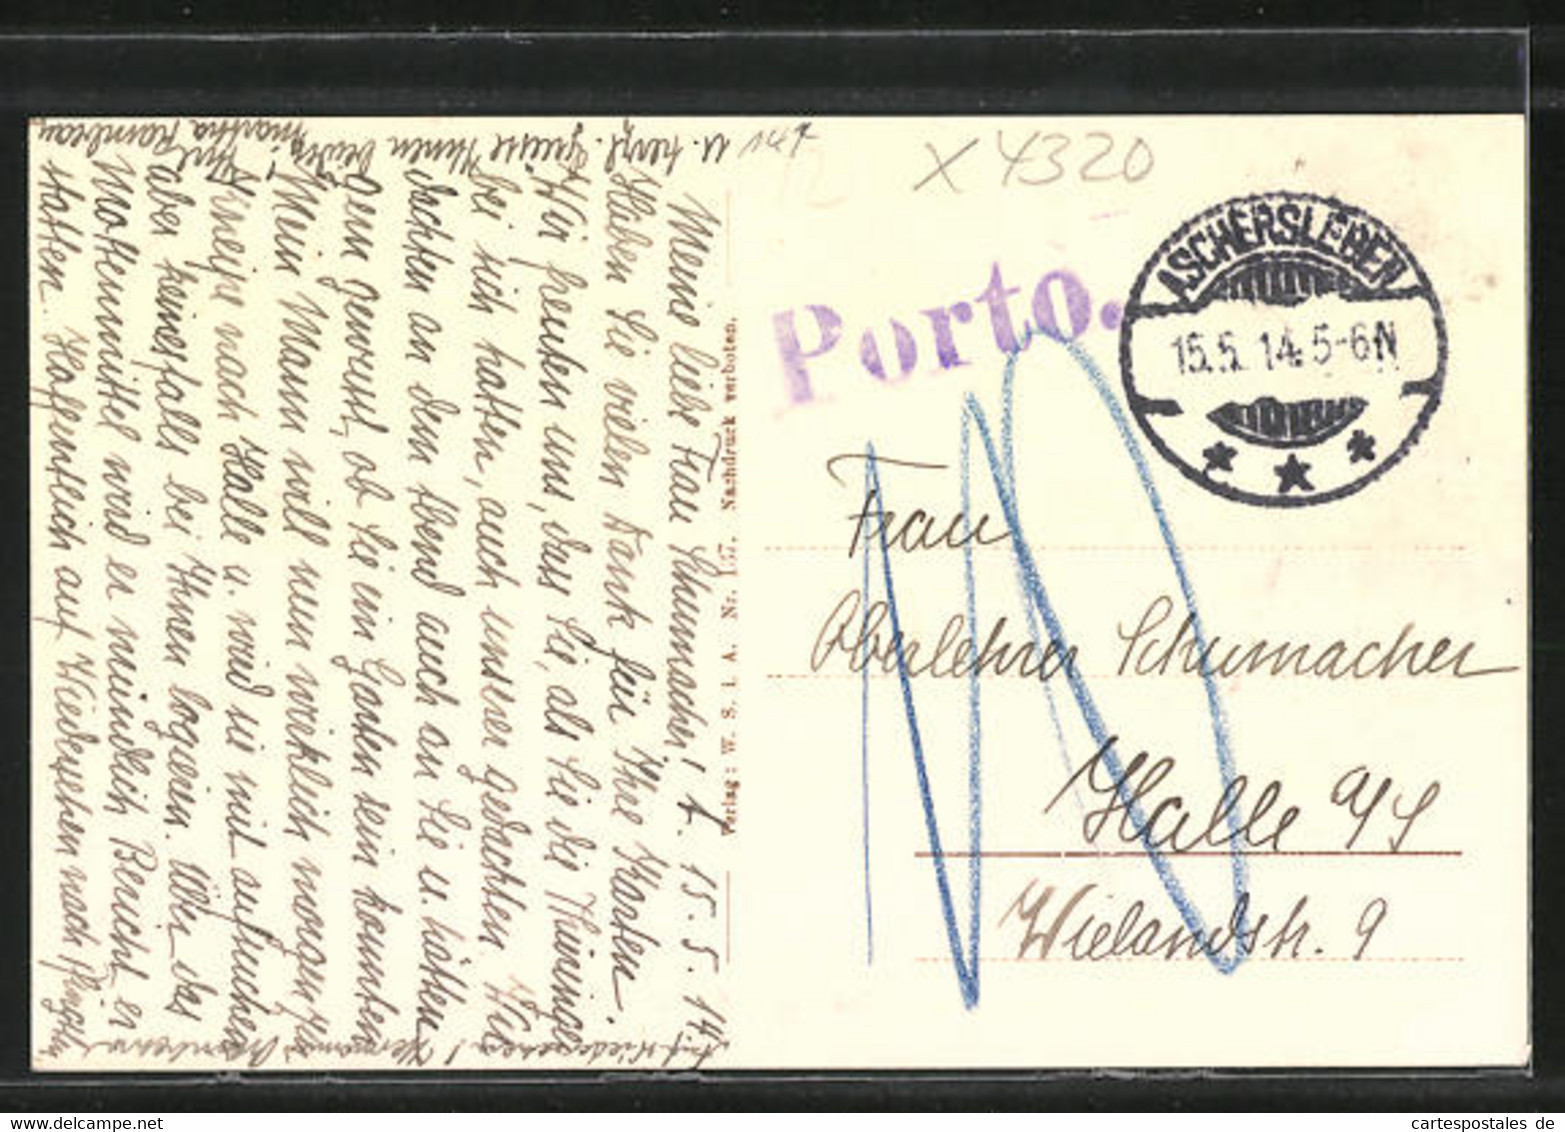 Meine liebe Frau Schumacher, A. 15. 5. 14.
Haben Sie vielen Dank für Ihre Karten.
Wir freuten uns, dass Sie, als Sie die Hieninger
bei sich hatten, auch unserer gedachten. Wir
dachten an dem Abend auch an Sie u. hätten
gern gewusst, ob Sie ein Garten sein konnten
Mein Mann will nun wirklich morgen zur
Kneipe nach Halle u. wird sie mit aufsuchen
aber keinesfalls bei Ihnen logieren. Über das
Mottenmittel wird er mündlich Bericht er
statten. Hoffentlich auf Wiedersehen nach Pfingsten
u. herzl. Grüsse Ihnen beiden!
Ihre
Martha
Auf Wiedersehen! Hermann
Verlag: W. S. i. A. Nr. 137. Nachdruck verboten.
147
X 4320
Porto.
ASCHERSLEBEN
15.5.14.5-6N
10
Frau
Oberlehrer Schumacher
Halle a/S
Wielandstr. 9
cartespostales de